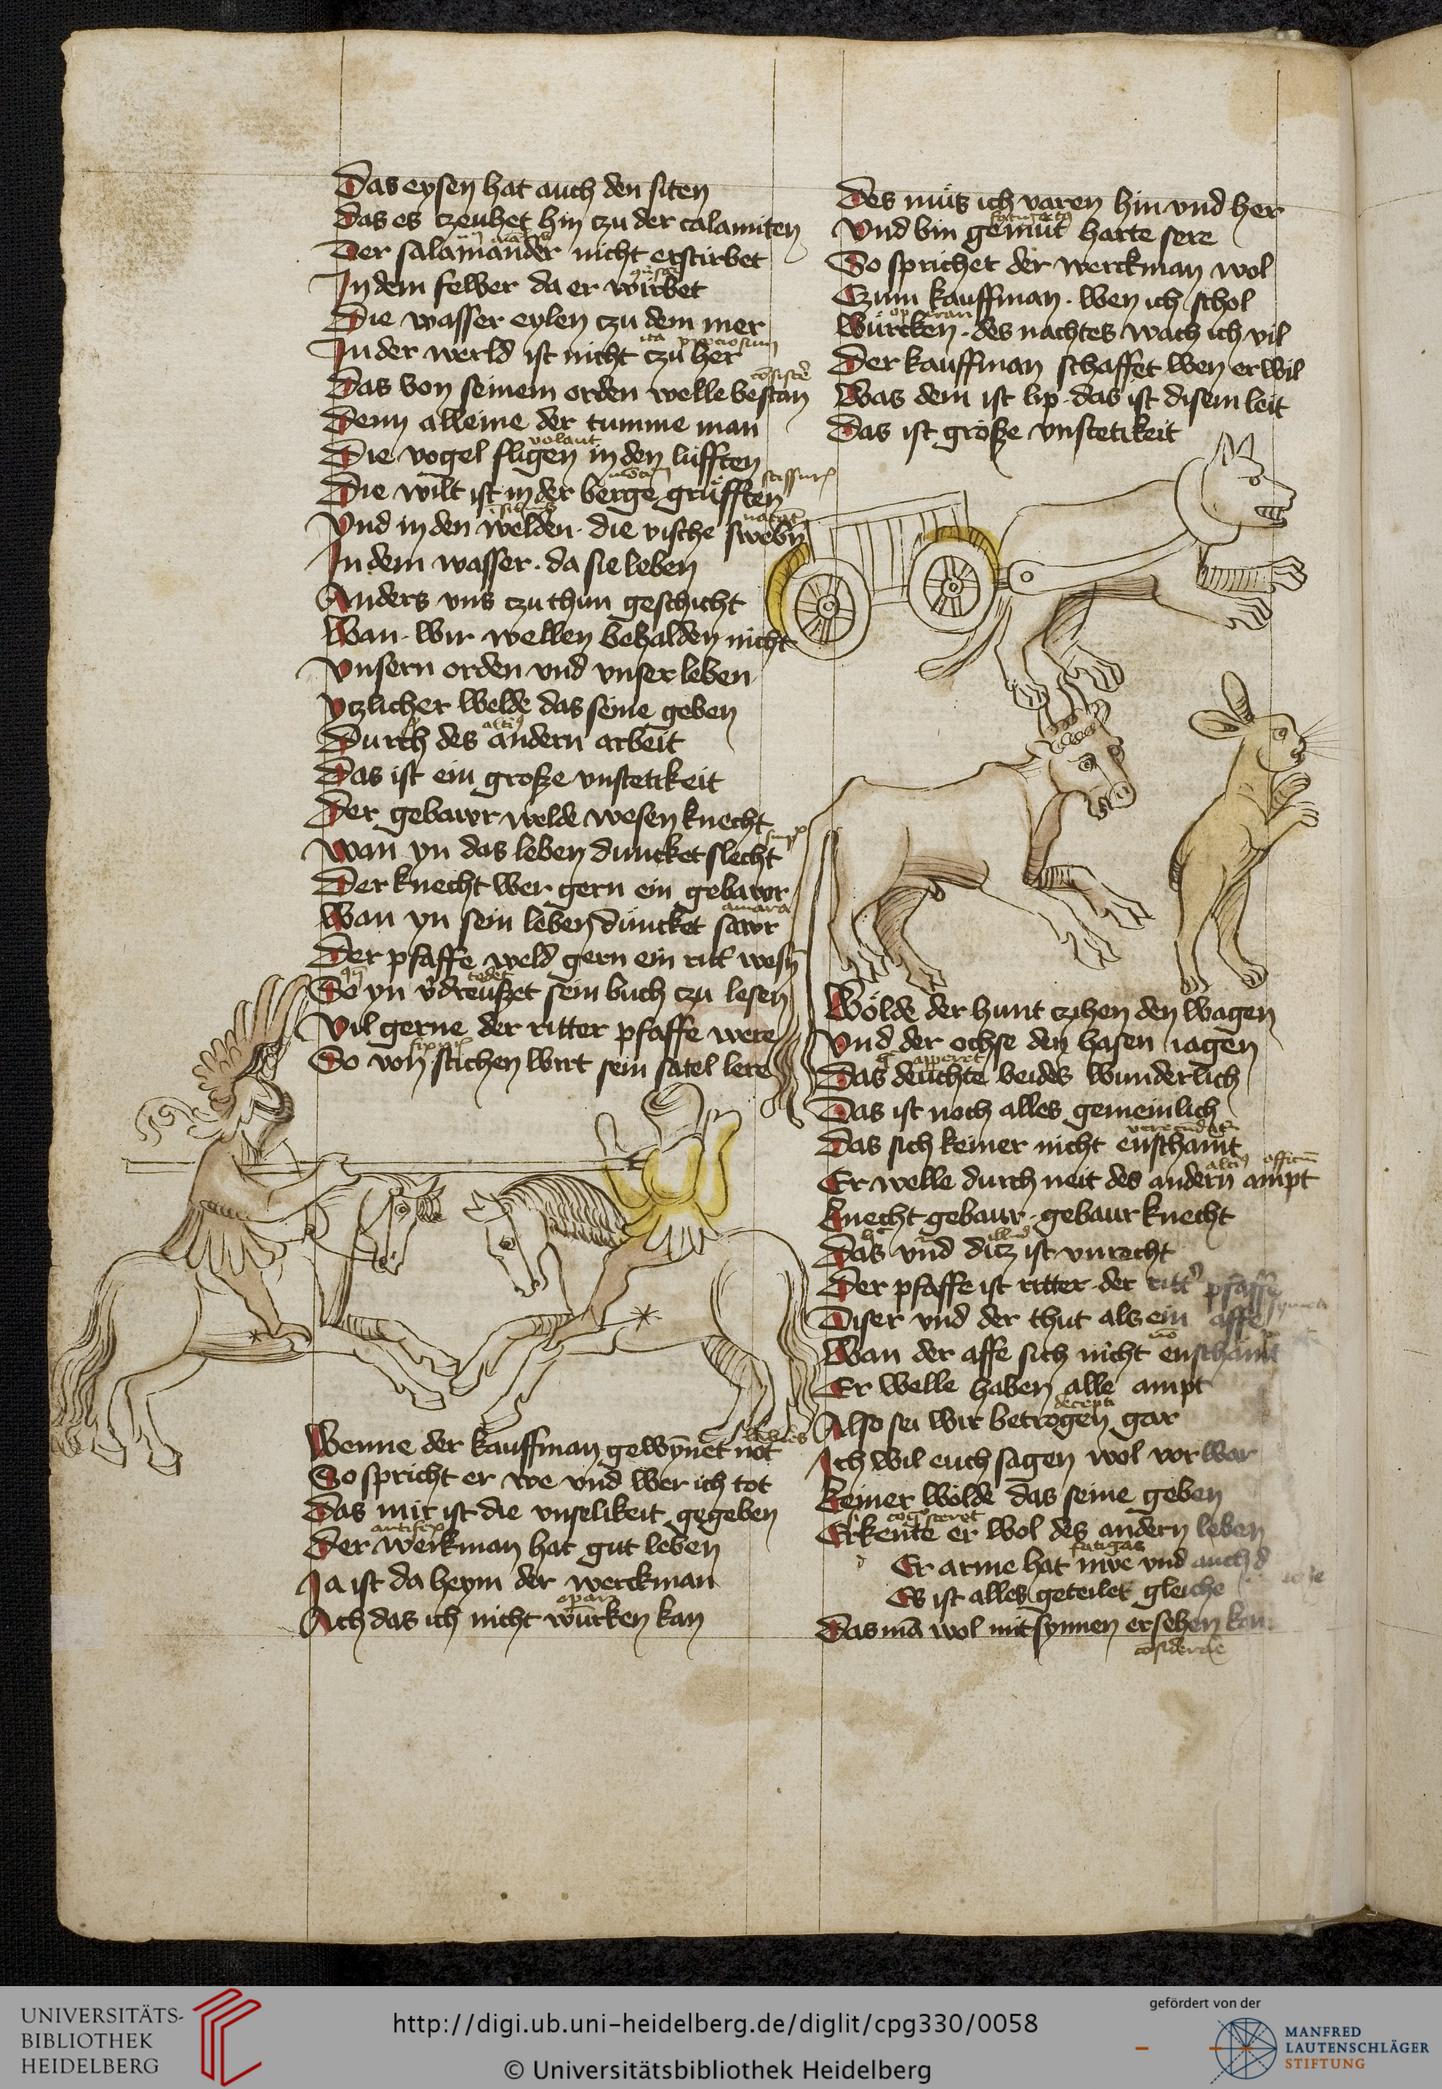 Das eysen hat auch den siten
Das es czeuhet hin czu der calamiten
Der salamander nicht erstirbet
In dem fewer da er wirbet
Die wasser eylen czu dem mer
ita preciosum
In der werld ist nicht czu her
Das von seinem orden welle bestan
Denn alleine der tumme man
volant
Die vogel fligen in den lüfften
Die wilt ist in der berge grüfften
Vnd in den welden · die vische swebn
In dem wasser · da sie leben
Anders vns czu thun geschicht
Wan · wir wellen behalden nicht
Vnsern orden vnd vnser leben
Yczlicher welde das seine geben
Durch des andern arbeit
Das ist ein große vnstetikeit
Der gebawr welde wesen knecht
Wan yn das leben duncket slecht
Der knecht wer gern ein gebawr
amara
Wan yn sein leben düncket sawr
Der pfaffe weld gern ein ritt wesn
tedet
So yn vdreußet sein buch czu lesen
Vil gerne der ritter pfaffe were
So von stichen wirt sein satel lere
Wenne der kauffman gewynnet not
So spricht er we vnd wer ich tot
Das mir ist die vnselikeit gegeben
artifex
Der werkman hat gut leben
Ja ist da heym der werckman
Ach das ich nicht würken kan
Des müs ich varen hin vnd her
Vnd bin gemüt harte sere
So sprichet der werckman wol
Czum kauffman · wen ich schol
Würcken · des nachtes wach ich vil
Der kauffman schaffet wen er wil
Was dem ist lip · das ist disem leit
Das ist große vnstetikeit
Wölde der hunt czihen den wagen
Vnd der ochse den hasen iagen
apperet
Das deuchte beides wunderlich
Das ist noch alles gemeinlich
Das sich keiner nicht enschamt
officium
Er welle durch neit des andern ampt
Knecht gebaur · gebaur knecht
Das vnd dicz ist vnrecht
Der pfaffe ist ritter · der ritt pfaffe
Diser vnd der thut als ein affe
Wan der affe sich nicht enschamt
Er welle haben alle ampt
decepti
Also sei wir betrogen gar
Ich wil euch sagen wol vorwar
Keiner wölde das seine geben
Erkente er wol des andern leben
fatigas
Er arme hat mwe vnd auch d
Es ist alles geteilet gleiche
Das mā wol mit synnen ersehen kan
considerare
UNIVERSITÄTS-
BIBLIOTHEK
HEIDELBERG
http://digi.ub.uni-heidelberg.de/diglit/cpg330/0058
© Universitätsbibliothek Heidelberg
gefördert von der
MANFRED
LAUTENSCHLÄGER
STIFTUNG